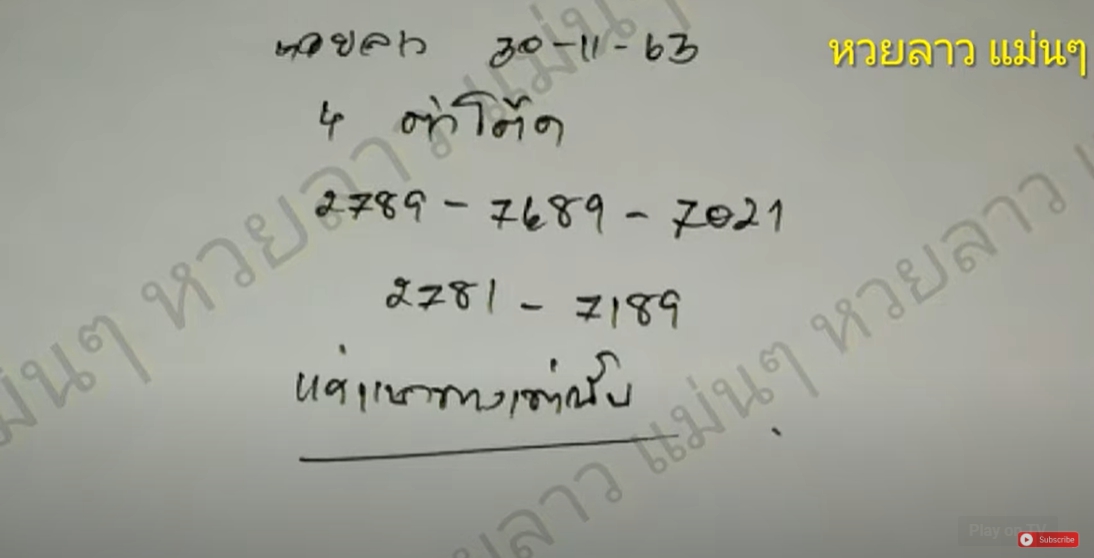 หวยลาว 30-11-63
หวยลาว แม่นๆ
4 ตัวโต๊ด
2789 - 7689 - 7021
2781 - 7189
แค่แนวทางเท่านั้น
หวยลาว แม่นๆ
แม่นๆ หวยลาว แม่นๆ
หวยลาว แม่นๆ หวยลาว
Play on TV
Subscribe